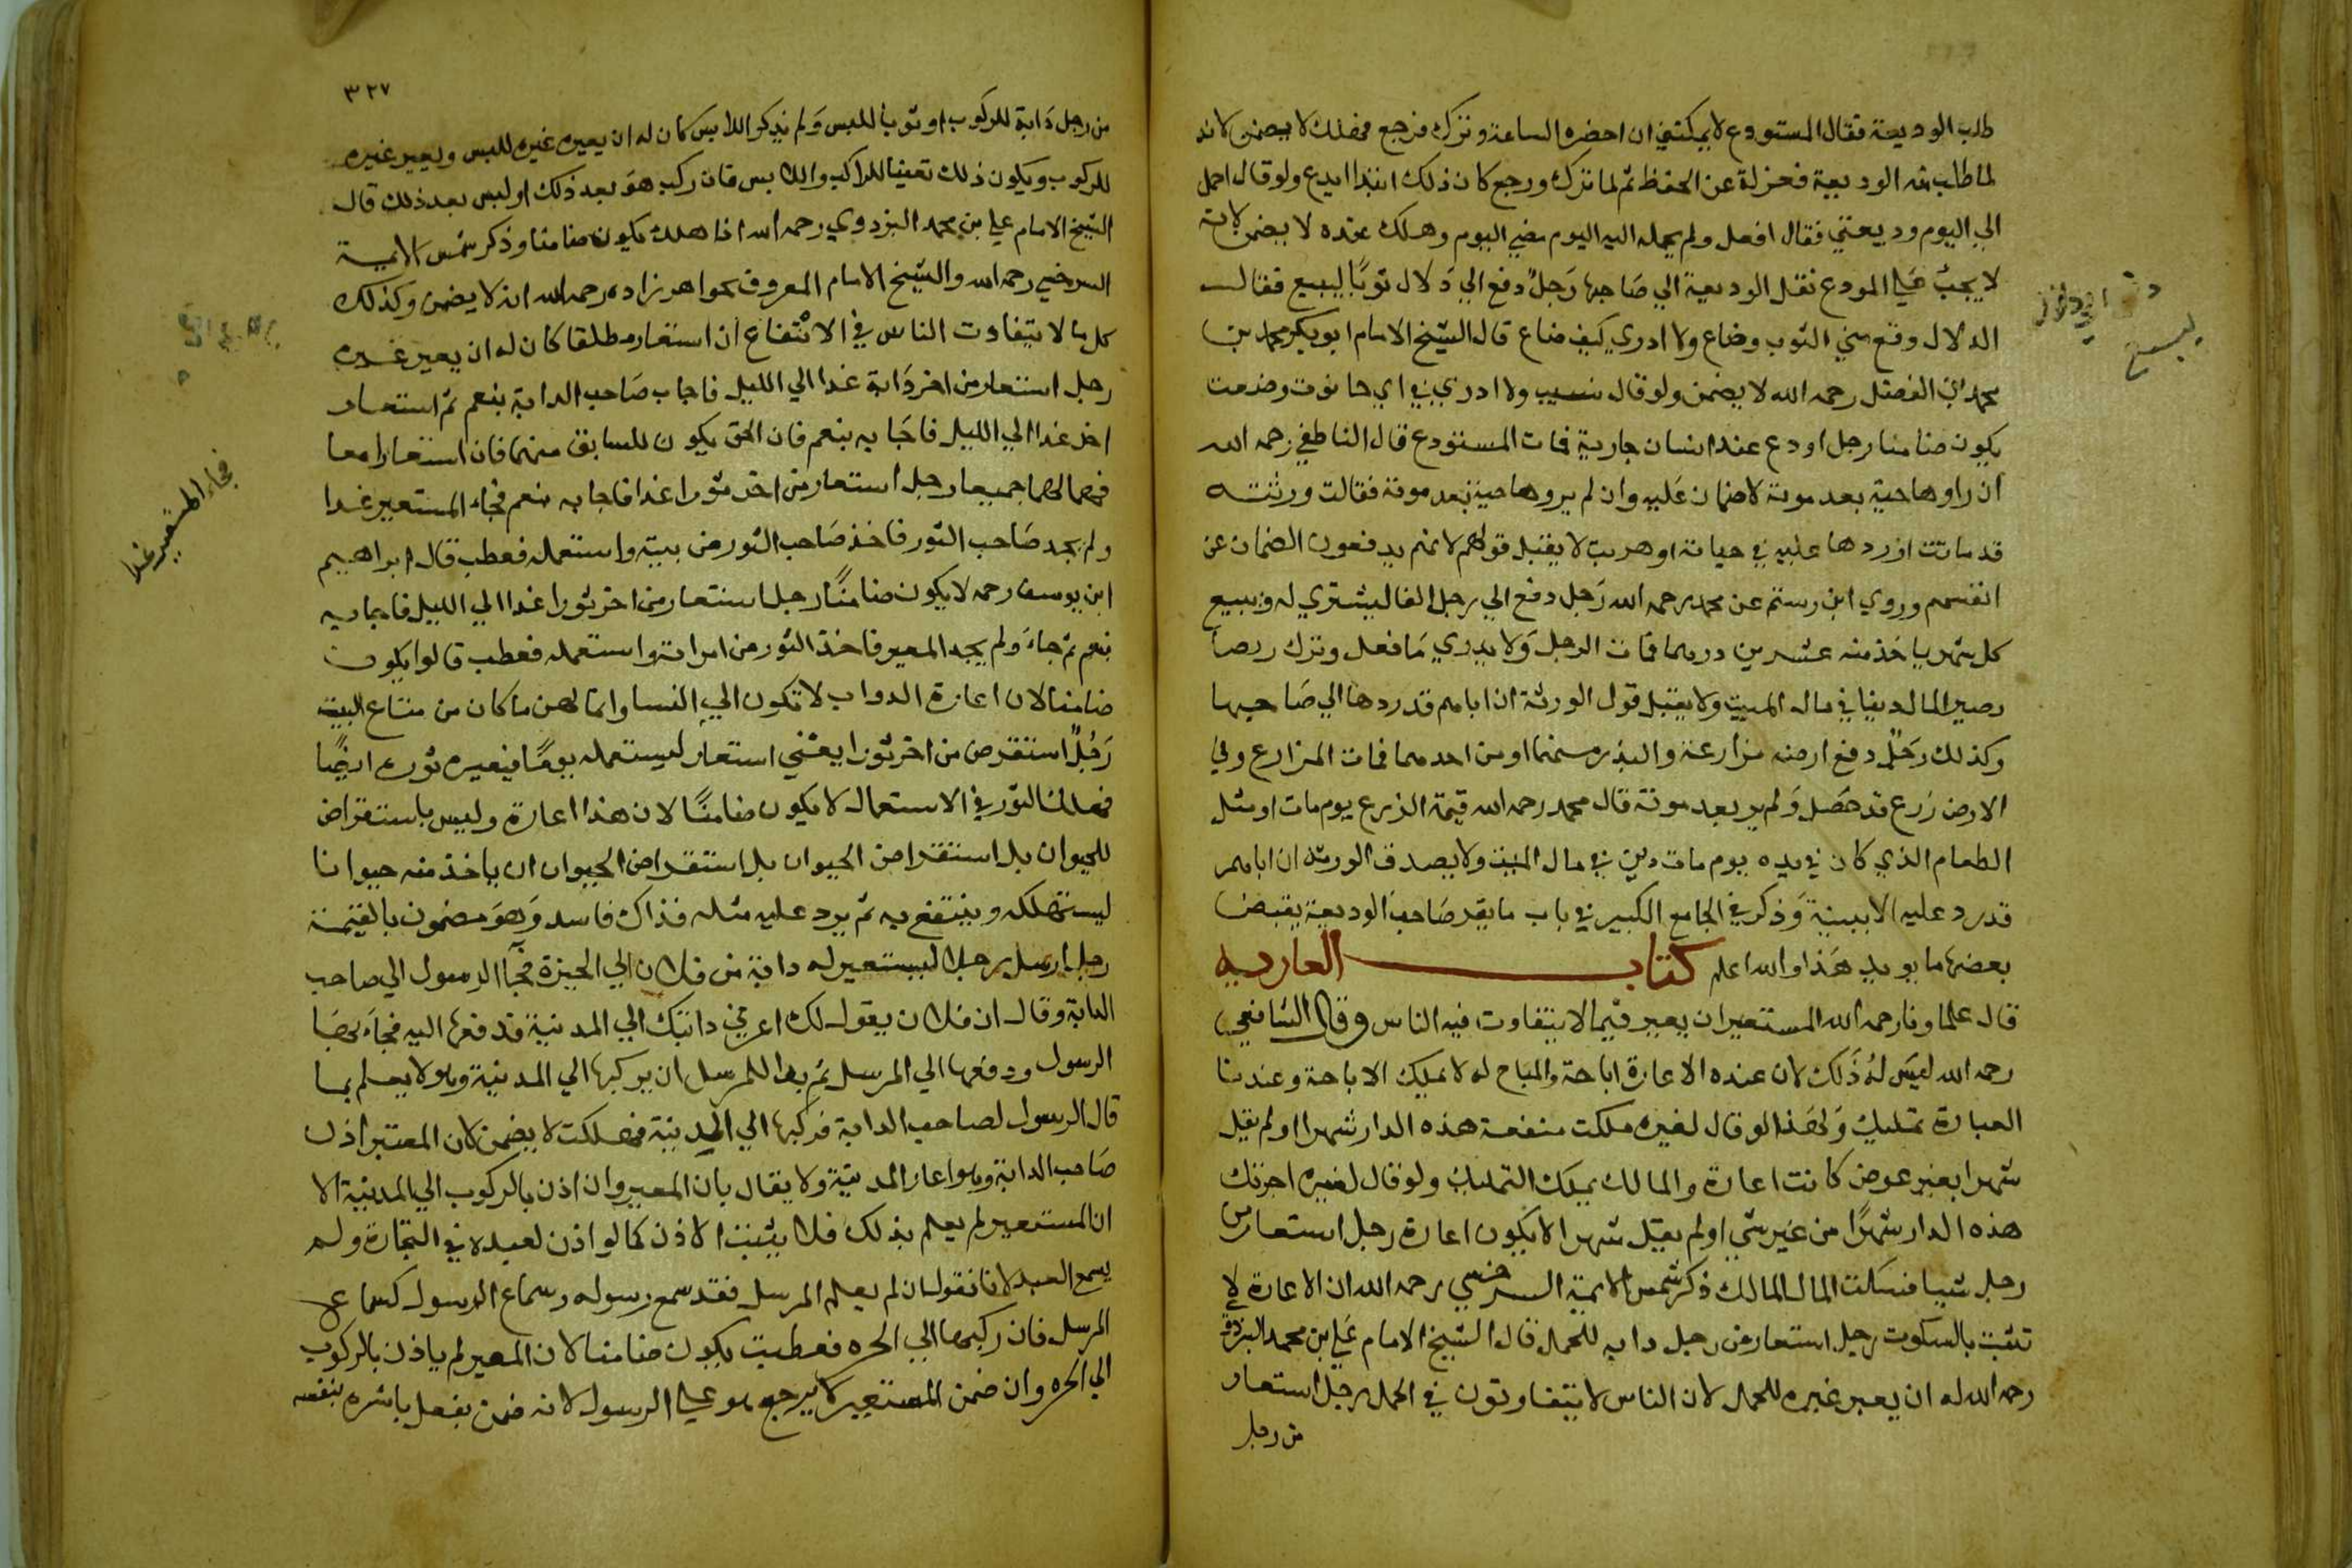 طلب الوديعة فقال المستودع لا يمكنني ان احضره الساعة وترك فرجع فهلك لا يضمن لانه
لما طلب منه الوديعة فعزله عن الحفظ ثم لما ترك ورجع كان ذلك ابتدا ايدع ولو قال احمل
الي اليوم وديعتي فقال افعل ولم يحمله اليه اليوم مضي اليوم وهلك عنده لا يضمن لانه
لا يجب علي المودع نقل الوديعة الي صاحبها رجل دفع الي دلال ثوبا ليبيع فقال
الدلال وقع مني الثوب وضاع ولا ادري كيف ضاع قال الشيخ الامام ابو بكر محمد بن
محمد بن الفضل رحمه الله لا يضمن ولو قال نسيت ولا ادري في اي حانوت وضعت
يكون ضامنا رجل اودع عند انسان جارية فمات المستودع قال الناطفي رحمه الله
ان راوها حية بعد موته لا ضمان عليه وان لم يروها حية بعد موته فقالت ورثته
قد ماتت او ردها عليه في حياته او هربت لا يقبل قولهم لانهم يدفعون الضمان عن
انفسهم وروي ابن رستم عن محمد رحمه الله رجل دفع الي رجل الفا ليشتري له ويبيع
كل شهر ياخذ منه عشرين درهما فمات الرجل ولا يدري ما فعل وترك
يصير المال دينا في مال الميت ولا يقبل قول الورثة ان اباهم قد ردها الي صاحبها
وكذلك رجل دفع ارضه مزارعة والبذر منهما او من احدهما فمات المزارع وفي
الارض زرع قد حصل ولم ير بعد موته قال محمد رحمه الله قيمة الزرع يوم مات او مثل
الطعام الذي كان في يده يوم مات دين في مال الميت ولا يصدق الورثة ان اباهم
قد رد عليه الا ببينة وذكر في الجامع الكبير في باب ما يقر صاحب الوديعة بقبض
بعضها ما يويد هذا والله اعلم كتاب العاريه
قال علماونا رحمه الله المستعير ان يعير فيما لا يتفاوت فيه الناس وقال الشافعي
رحمه الله ليس له ذلك لان عنده الاعارة اباحة والمباح له لا يملك الاباحة وعندنا
العبارة تمليك ولهذا لو قال لغيره ملكت منفعة هذه الدار شهرا او لم يقل
شهرا بغير عوض كانت اعارة والمالك يملك التمليك ولو قال لغيره اجرتك
هذه الدار شهرا من غير شي او لم يقل شهرا لا يكون اعارة رجل استعار من
رجل شيا فسكت المال المالك ذكر شمس الايمة السرخسي رحمه الله ان الاعارة لا
تثبت بالسكوت رجل استعار من رجل دابه للحمل قال الشيخ الامام علي ابن محمد البزدوي
رحمه الله له ان يعير غيره للحمل لان الناس لا يتفاوتون في الحمل رجل استعار
من رجل
ليبيع
٣٢٧
من رجل دابة للركوب او ثوبا للبس ولم يذكر اللابس كان له ان يعير غيره للبس ويعير غيره
للركوب ويكون ذلك تعينا للراكب واللابس فان ركب هو بعد ذلك او لبس بعد ذلك قال
الشيخ الامام علي بن محمد البزدوي رحمه الله اذا هلك يكون ضامنا وذكر شمس الايمة
السرخسي رحمه الله والشيخ الامام المعروف بخواهر زاده رحمه الله انه لا يضمن وكذلك
كل ما لا يتفاوت الناس في الانتفاع ان استعار مطلقا كان له ان يعير غيره
رجل استعار من اخر دابة غدا الي الليل فاجاب صاحب الدابة بنعم ثم استعار
اخر غدا الي الليل فاجابه بنعم فان الحق يكون للسابق منهما فان استعارا معا
فهما لهما جميعا رجل استعار من اخر ثورا غدا فاجابه بنعم فجاء المستعير غدا
ولم يجد صاحب الثور فاخذ صاحب الثور من بيته واستعمله فعطب قال ابراهيم
ابن يوسف رحمه لا يكون ضامنا رجل استعار من اخر ثورا غدا الي الليل فاجابه
بنعم ثم جاء ولم يجد المعير فاخذ الثور من امراته واستعمله فعطب قالوا يكون
ضامنا لان اعارة الدواب لا تكون الي النسا وانما لهن ما كان من متاع البيت
رجل استقرض من اخر ثورا يعني استعار ليستعمله يوما فيعيره ثوره ايضا
فهلك الثور في الاستعمال لا يكون ضامنا لان هذا اعارة وليس باستقراض
للحيوان بل استقراض الحيوان بل استقراض الحيوان ان ياخذ منه حيوانا
ليستهلكه وينتفع به ثم يرد عليه مثله فذاك فاسد وهو مضمون بالقيمة
رجل ارسل رجلا ليستعير له دابة من فلان الي الحيرة فجا الرسول الي صاحب
الدابة وقال ان فلان يقول لك اعرني دابتك الي المدينة فدفعها اليه فجاء بها
الرسول ودفعها الي المرسل ثم بدا للمرسل ان يركبها الي المدينة وهو لا يعلم بما
قال الرسول لصاحب الدابة فركبها الي المدينة فهلكت لا يضمن لان المعتبر اذن
صاحب الدابة وهو اعار المدينة ولا يقال بان المعير وان اذن بالركوب الي المدينة الا
ان المستعير لم يعلم بذلك فلا يثبت الاذن كما لو اذن لعبده في التجارة ولم
يسمع العبد لانا نقول ان لم يعلم المرسل فقد سمع رسوله وسماع الرسول كسماع
المرسل فان ركبها الي الحره فعطبت يكون ضامنا لان المعير لم ياذن بالركوب
الي الحره وان ضمن المستعير لا يرجع هو علي الرسول لانه ضمن بفعل باشره بنفسه
فجاء المستعير غدا